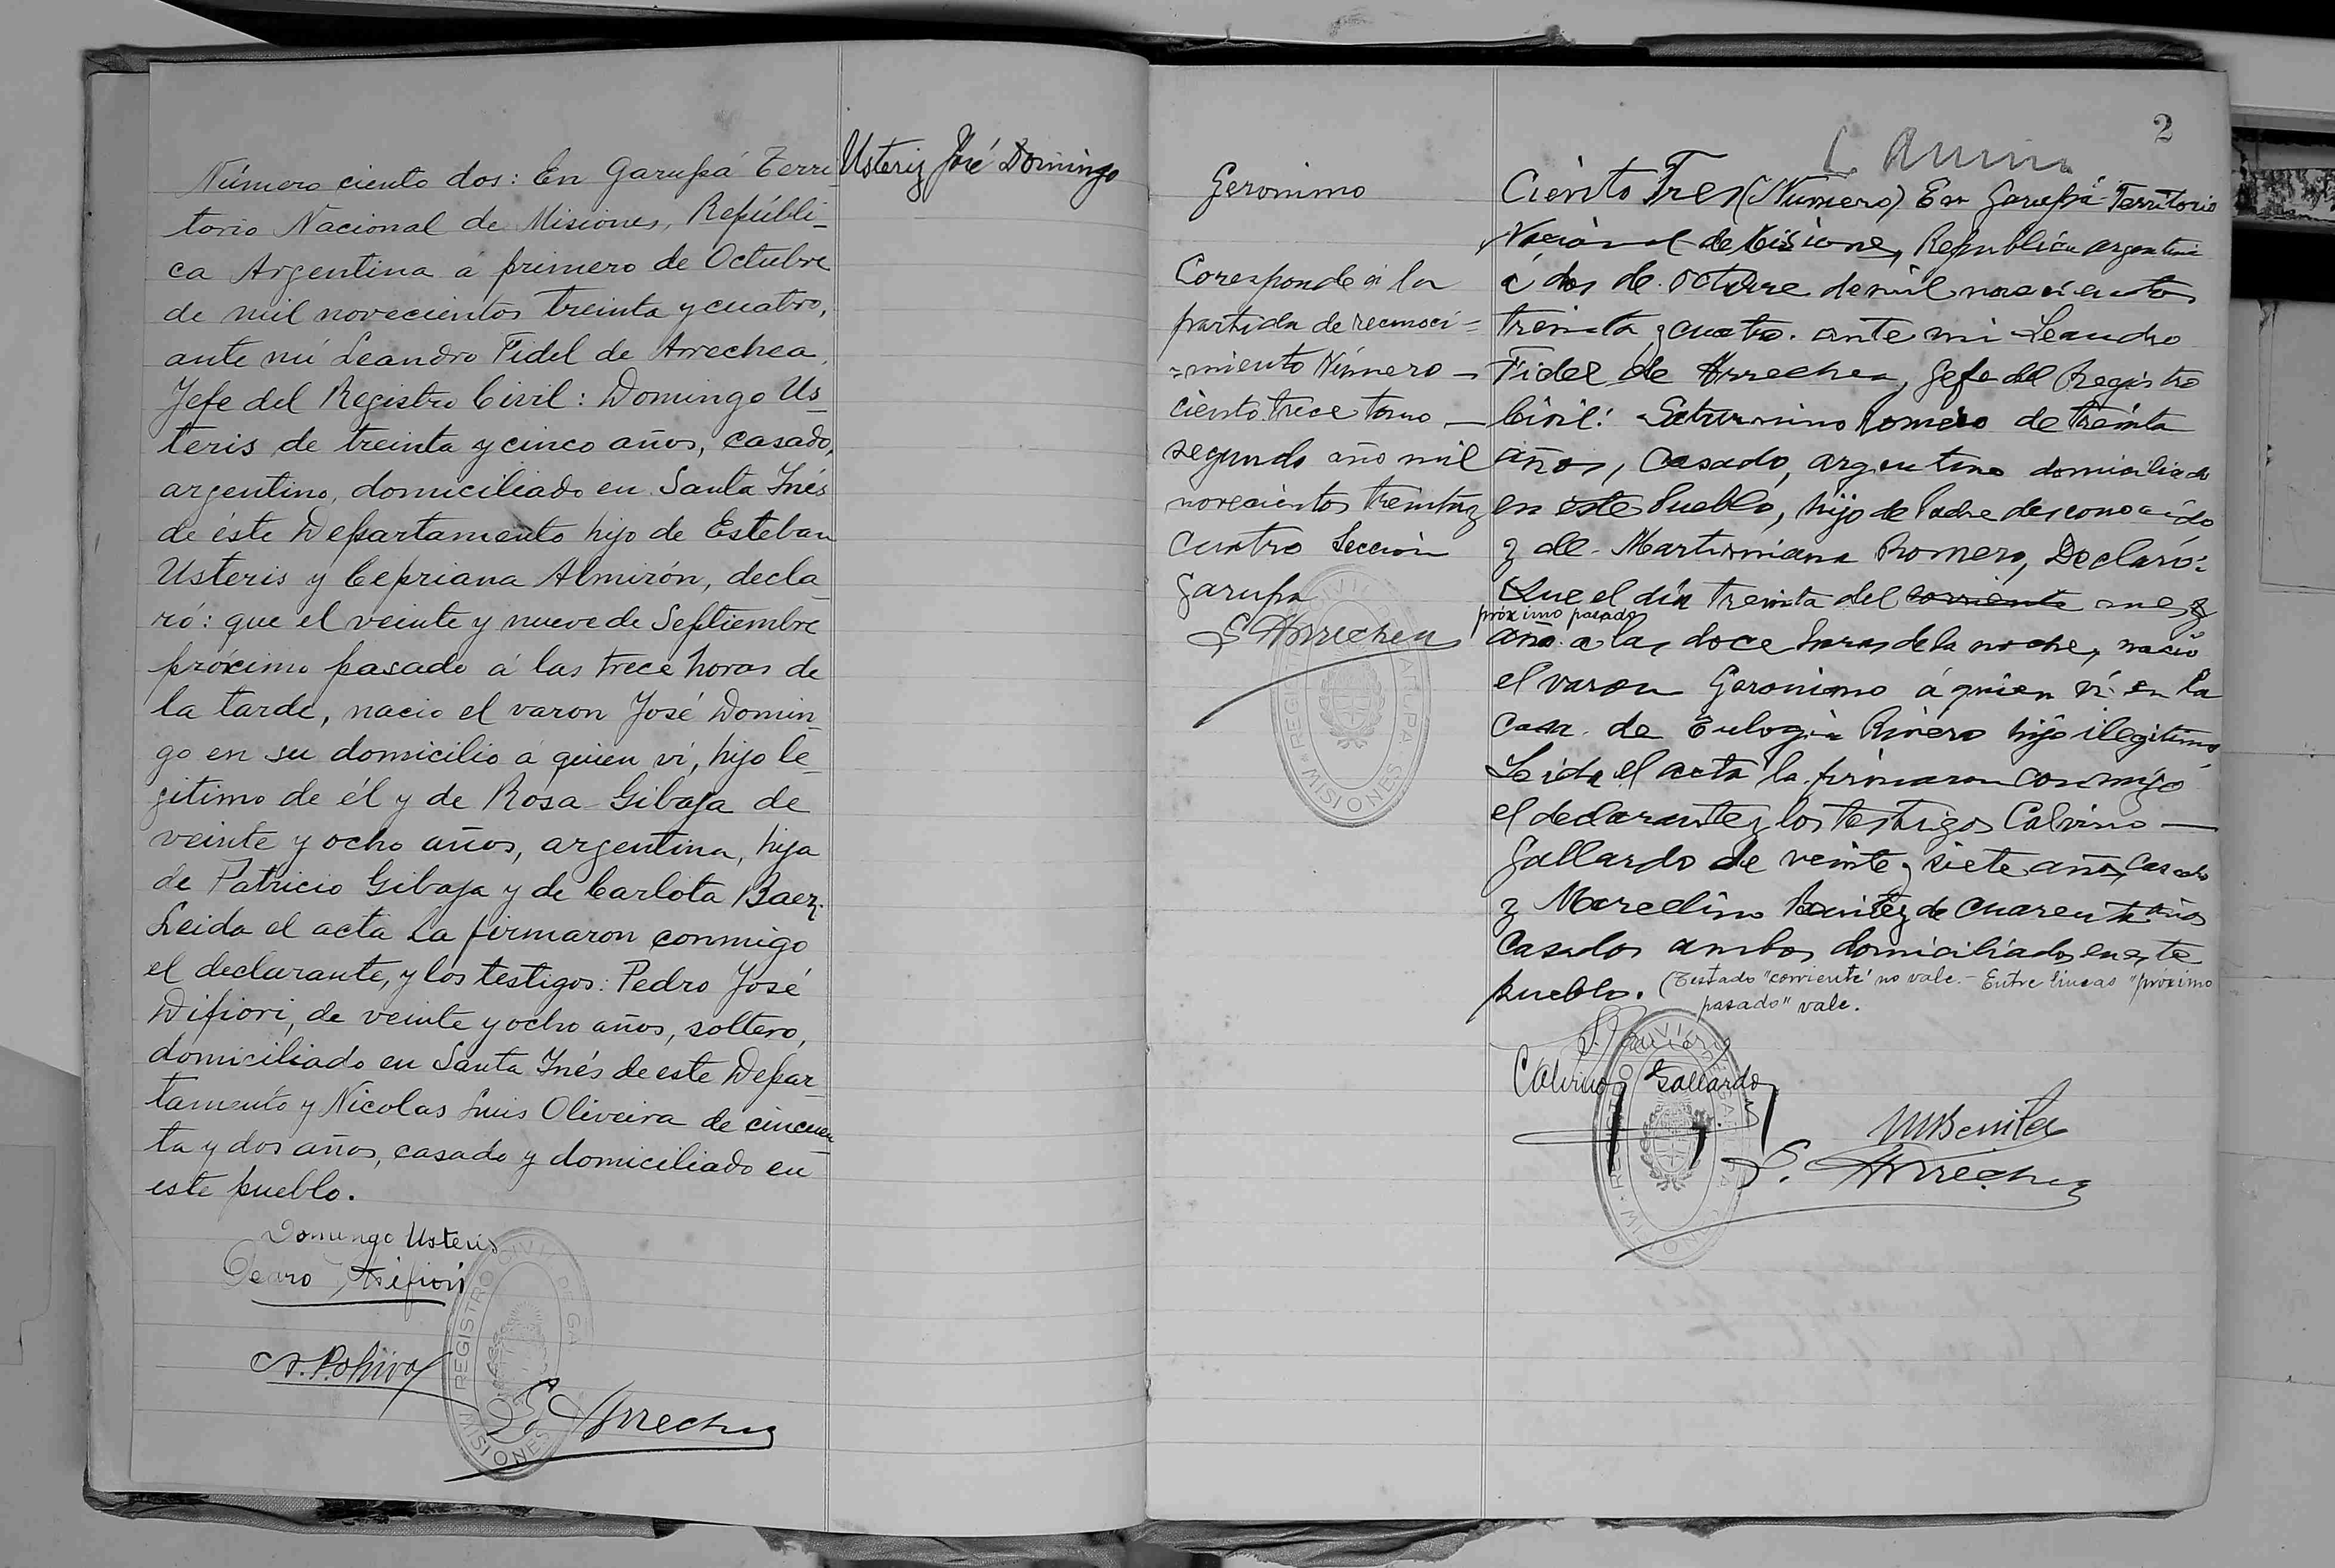 Número ciento dos: En Garupá Terri-
torio Nacional de Misiones, Repúbli-
ca Argentina a primero de Octubre
de mil novecientos treinta y cuatro,
ante mí Leandro Fidel de Arrechea,
Jefe del Registro Civil: Domingo Us-
teris de treinta y cinco años, casado,
argentino, domiciliado en Santa Inés
de éste Departamento hijo de Esteban
Usteris y Cepriana Almirón, decla-
ró: que el veinte y nueve de Septiembre
próximo pasado á las trece horas de
la tarde, nacio el varon José Domin-
go en su domicilio á quien ví, hijo le-
gitimo de él y de Rosa Gibaja de
veinte y ocho años, argentina, hija
de Patricio Gibaja y de Carlota Baez.
Leida el acta la firmaron conmigo
el declarante, y los testigos: Pedro José
Difiori, de veinte y ocho años, soltero,
domiciliado en Santa Inés de este Depar-
tamento y Nicolas Luis Oliveira de cincuen-
ta y dos años, casado y domiciliado en
este pueblo.
Domingo Usteris
Pedro Difiori
REGISTRO CIVIL DE GA
MISIONES
L. Arrechea
Usteriz José Domingo
Geronimo
Coresponde á la
partida de reconoci=
=miento Número —
ciento trece tomo —
segundo año mil
novecientos treinta y
cuatro Sección
Garupa
L Arrechea
REGISTRO CIVIL GARUPA
MISIONES
2
Ciento Tres (Número) En Garupá Territorio
Nacional de Misiones, Republica argentina
á dos de octubre de mil novecientos
treinta y cuatro. ante mi Leandro
Fidel de Arrechea, Gefe del Registro
Civil: Saturnino Romero de treinta
años, Casado, argentino domiciliado
en este Pueblo, hijo de Padre desconocido
y de Marturniana Romero, Declaró:
Que el día treinta del corriente mes y
próximo pasado
año a las doce horas de la noche, nacio
el varon Geronimo á quien ví en la
casa de Eulogia Rivero hijo ilegitimo,
Leida el acta la firmaron conmigo
el declarante y los testigos Calvino —
Gallardo de veinte y siete años, casado
y Marcelino Benitez de cuarenta años
Casados ambos domiciliados en este
pueblo. (Testado "corriente" no vale.- Entre lineas "próximo
pasado" vale.
Calvino Gallardo
M Benitez
L. Arrechea